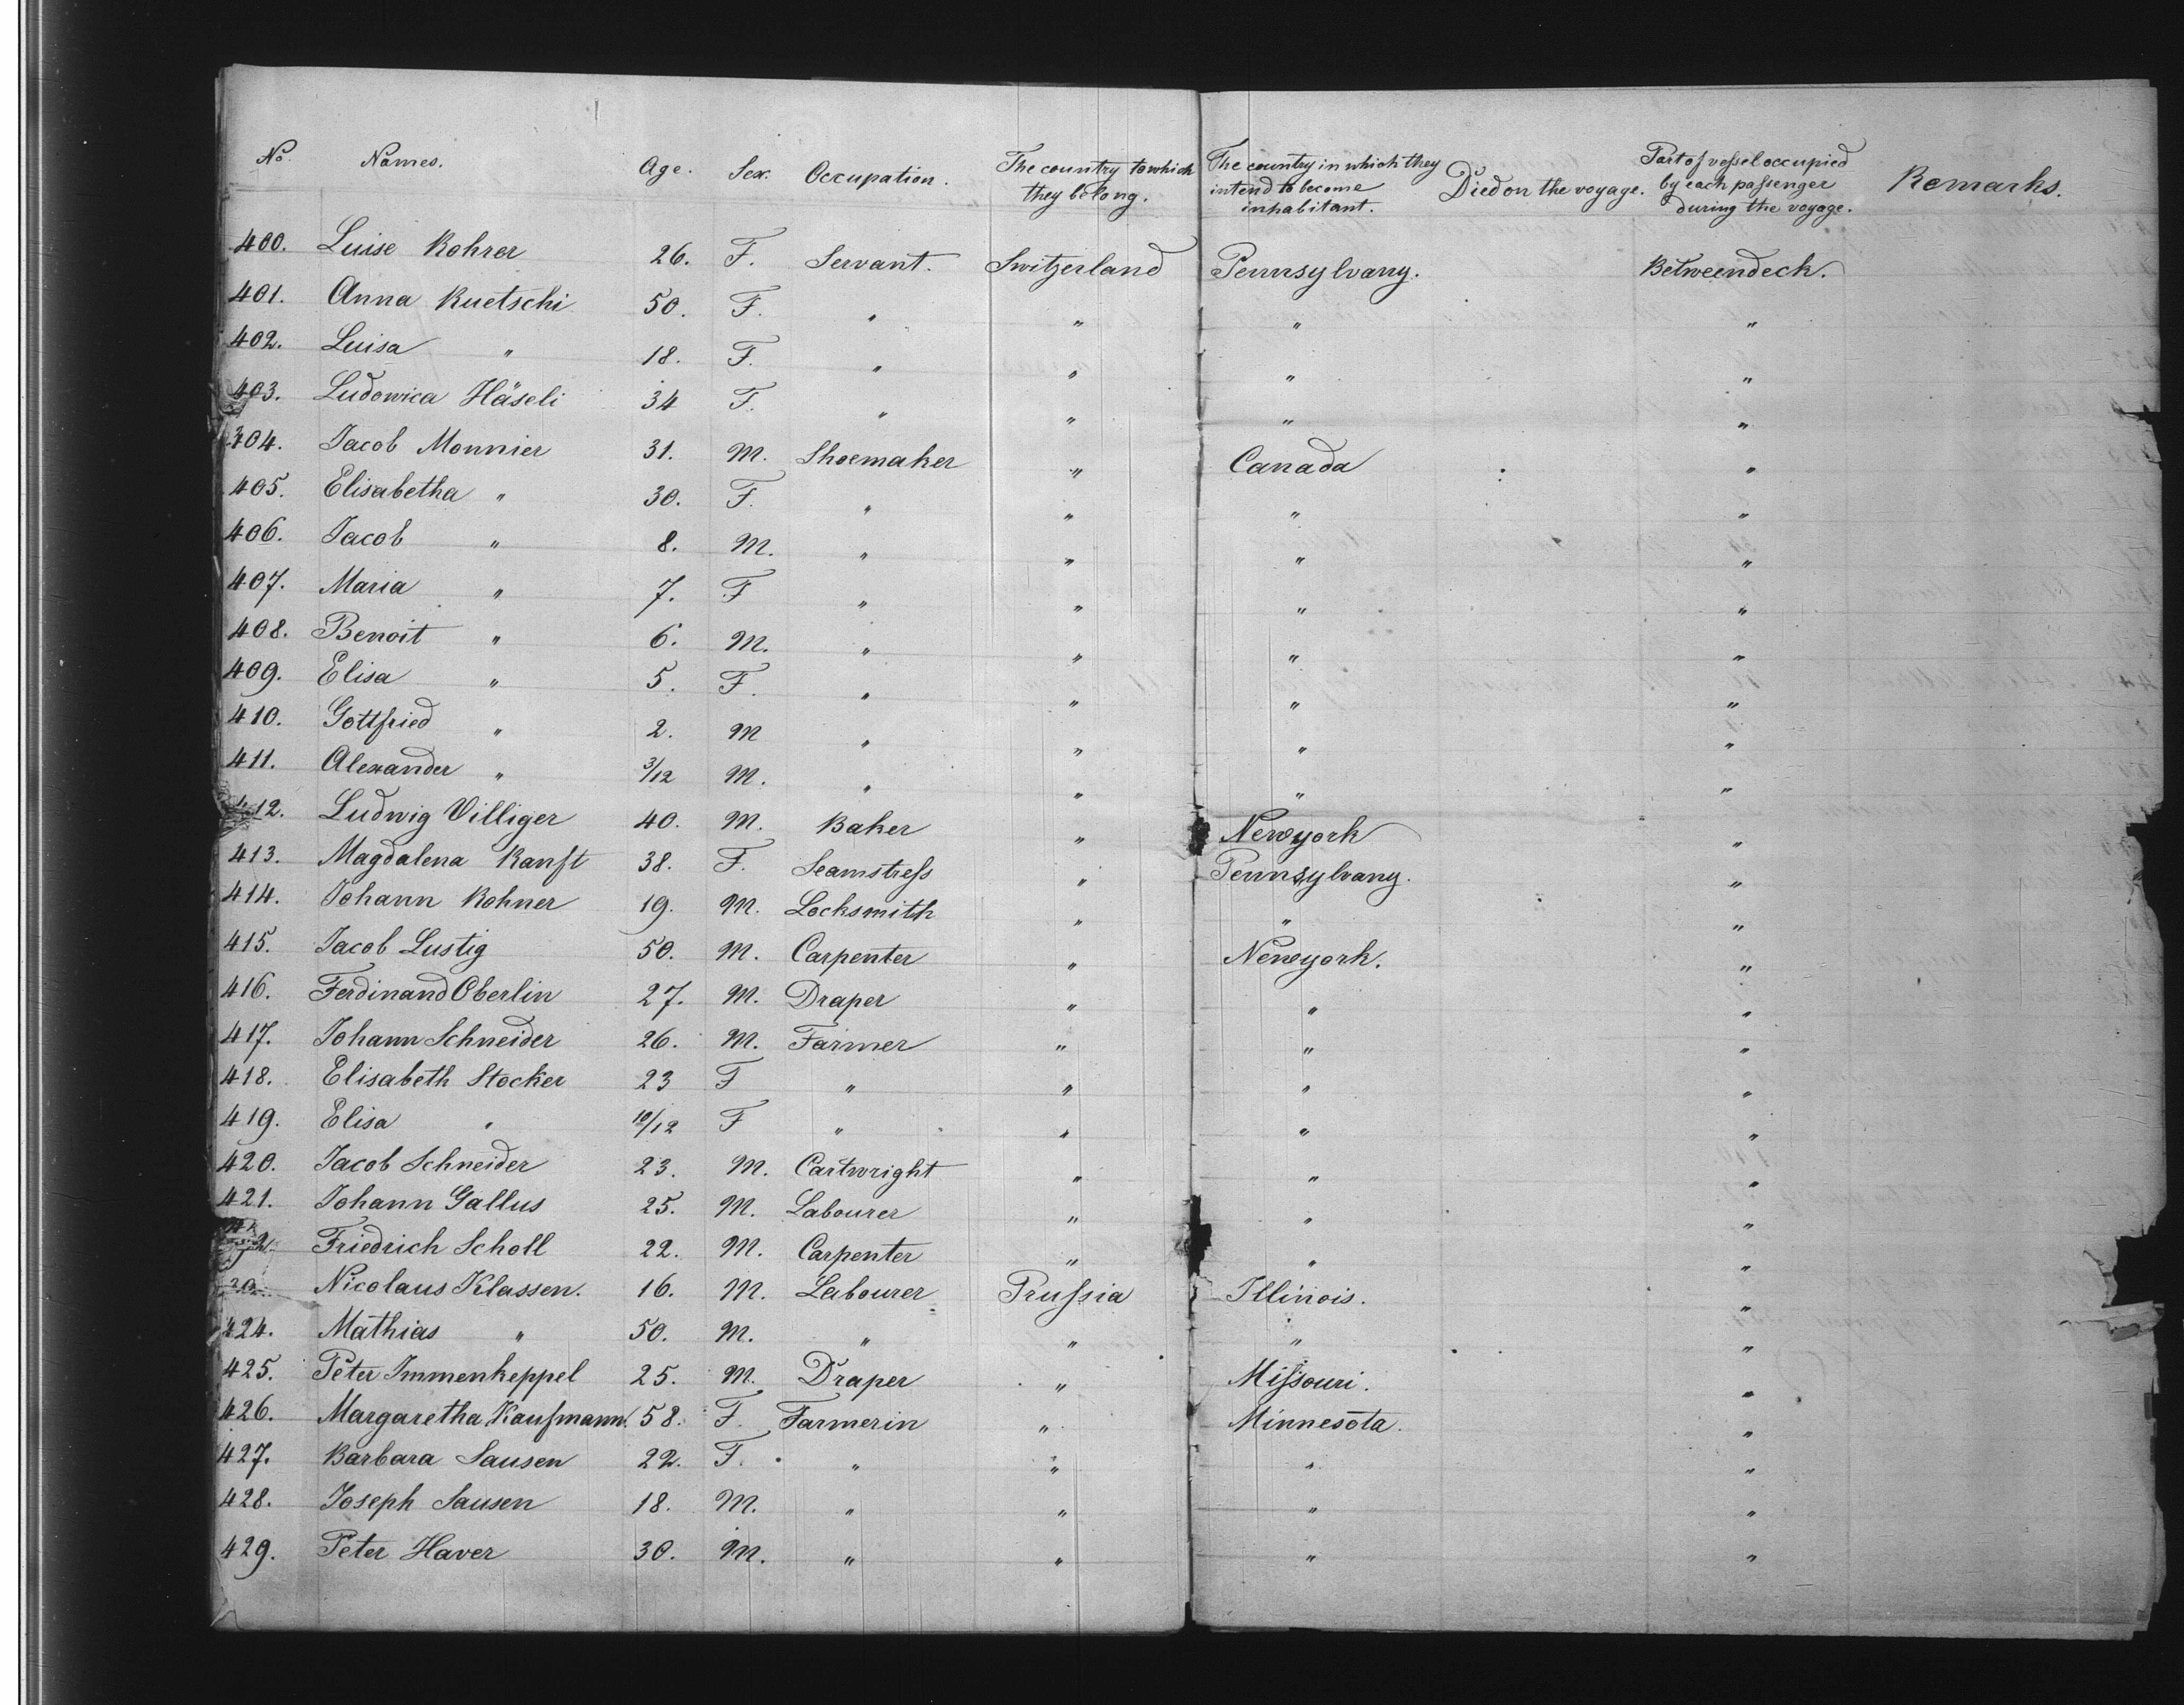 No. Names. Age. Sex. Occupation. The country to which they belong. The country in which they intend to become inhabitant. Died on the voyage. Part of vessel occupied by each passenger during the voyage. Remarks.
400. Luise Rohrer 26. F. Servant. Switzerland Pennsylvany. Betweendeck.
401. Anna Ruetschi 50. F. " " " "
402. Luisa " 18. F. " " " "
403. Ludowica Häseli 34 F. " " " "
404. Jacob Monnier 31. M. Shoemaker " Canada "
405. Elisabetha " 30. F. " " " "
406. Jacob " 8. M. " " " "
407. Maria " 7. F " " " "
408. Benoit " 6. M. " " " "
409. Elisa " 5. F. " " " "
410. Gottfried " 2. M " " " "
411. Alexander " 3/12 M. " " " "
412. Ludwig Villiger 40. M. Baker " Newyork "
413. Magdalena Ranft 38. F. Seamstress " Pennsylvany. "
414. Johann Rohner 19. M. Locksmith " " "
415. Jacob Lustig 50. M. Carpenter " Newyork. "
416. Ferdinand Oberlin 27. M. Draper " " "
417. Johann Schneider 26. M. Farmer " " "
418. Elisabeth Stocker 23 F " " " "
419. Elisa " 10/12 F " " " "
420. Jacob Schneider 23. M. Cartwright " " "
421. Johann Gallus 25. M. Labourer " " "
Friedrich Scholl 22. M. Carpenter " " "
Nicolaus Klassen. 16. M. Labourer Prussia Illinois. "
424. Mathias " 50. M. " " " "
425. Peter Immenkeppel 25. M. Draper " Missouri. "
426. Margaretha Kaufmann. 58. F. Farmerin " Minnesota. "
427. Barbara Sausen 22. F. " " " "
428. Joseph Sausen 18. M. " " " "
429. Peter Haver 30. M. " " " "